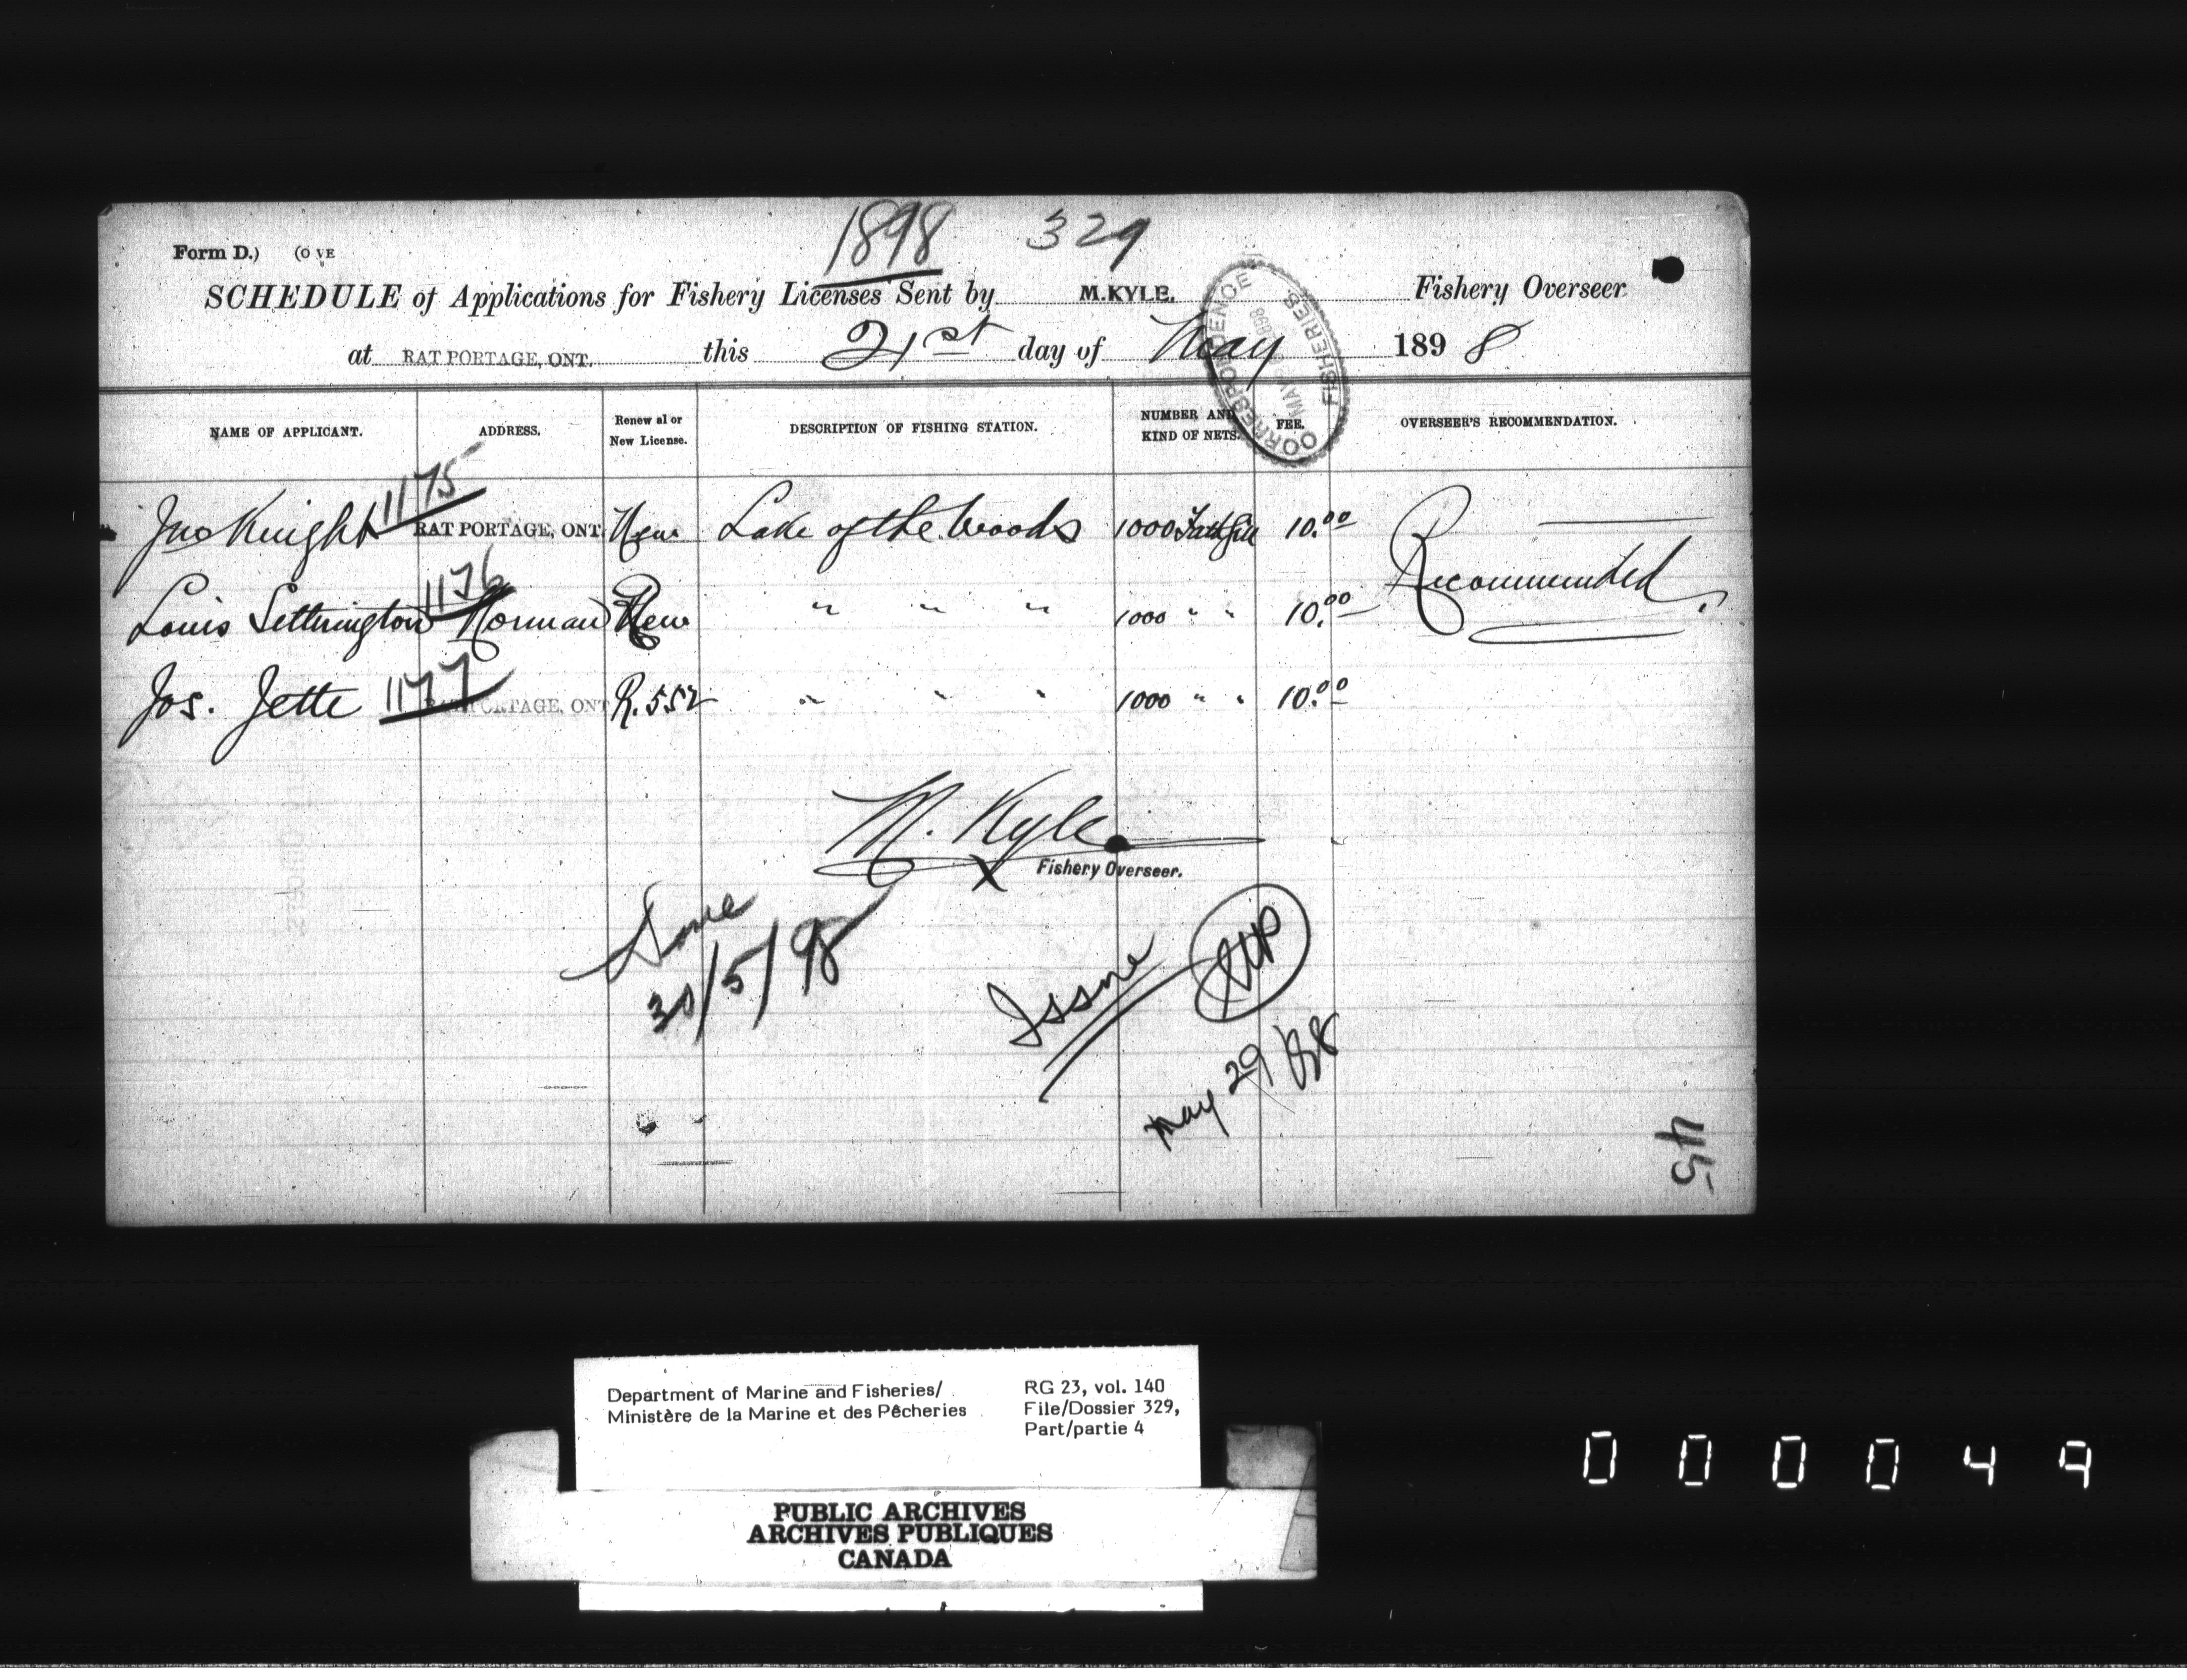 1898 329
Form D.) (OVE
SCHEDULE of Applications for Fishery Licenses Sent by M.KYLE. Fishery Overseer
at RAT PORTAGE, ONT. this 21st day of May 1898
CORRESPONDENCE MAY 1898 FISHERIES
NAME OF APPLICANT. ADDRESS. Renewal or New License. DESCRIPTION OF FISHING STATION. NUMBER AND KIND OF NETS. FEE. OVERSEER'S RECOMMENDATION.
Jno Knight 1175 RAT PORTAGE, ONT. New Lake of the Woods 1000 Fath Gill 10.00
Recommended.
Louis Setterington 1176 Norman New " " " 1000 " " 10.00
Jos. Jette 1177 RAT PORTAGE, ONT R. 552 " " " 1000 " " 10.00
M. Kyle
X Fishery Overseer.
Done
30/5/98
Issue
May 29/98
45
Department of Marine and Fisheries/
Ministère de la Marine et des Pêcheries
RG 23, vol. 140
File/Dossier 329,
Part/partie 4
PUBLIC ARCHIVES
ARCHIVES PUBLIQUES
CANADA
000049